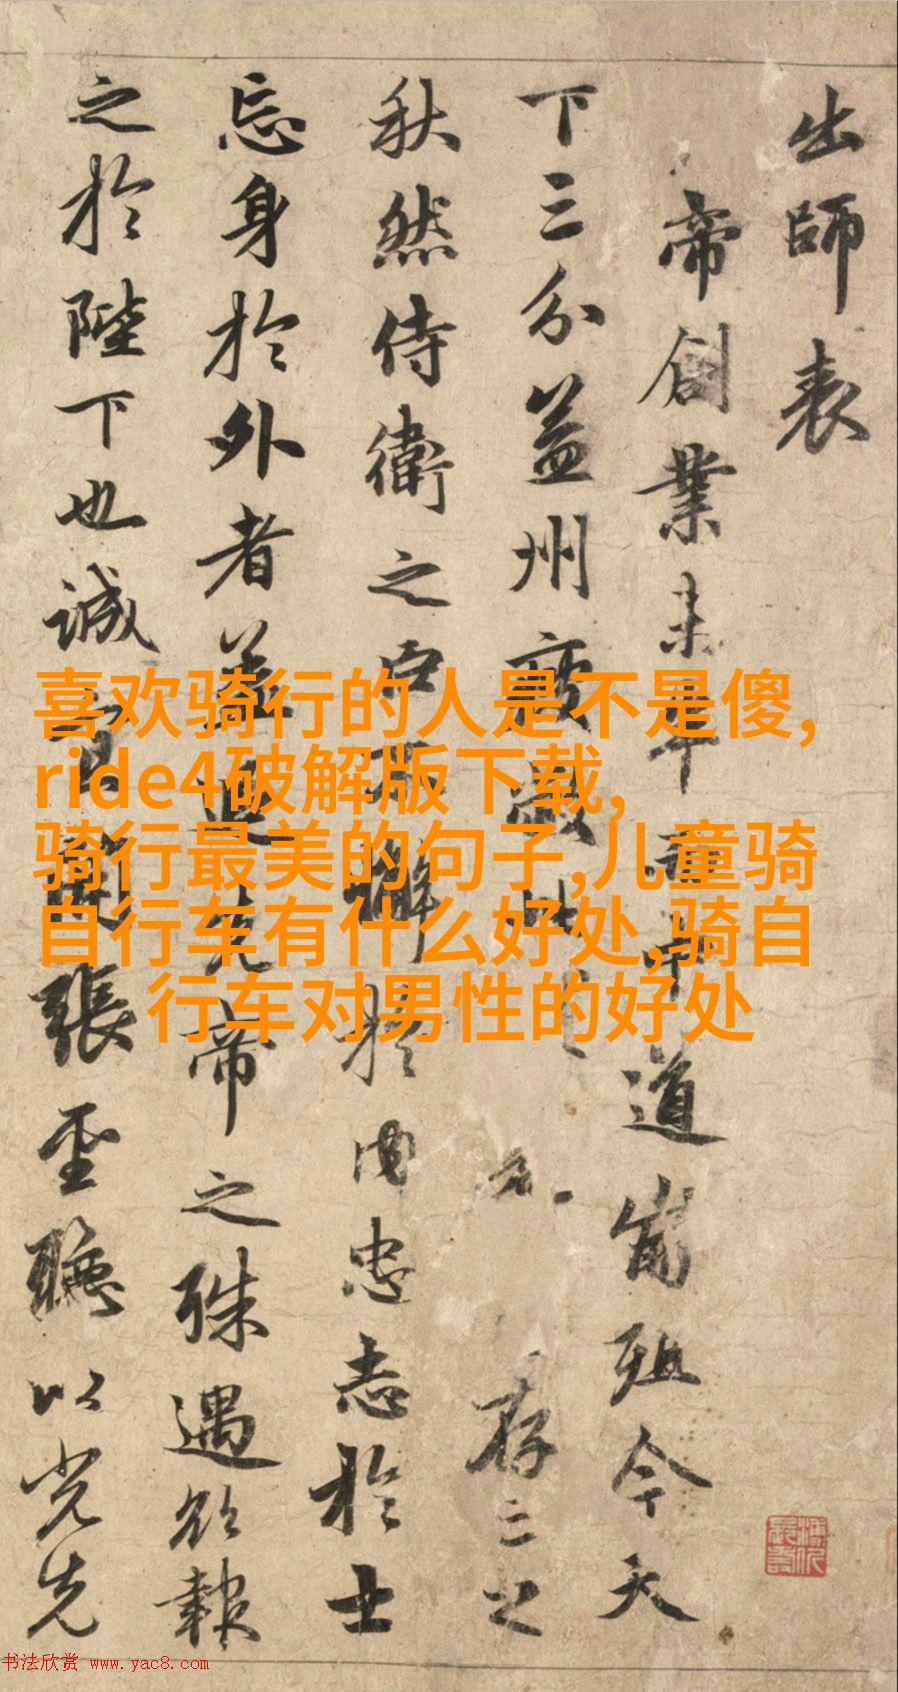 出師表
帝創業未半而中道崩殂今天
下三分益州疲敝此存亡之
秋然侍衛之臣不懈於内忠志於士
忘身於外者蓋追先帝之殊遇欲報
之於陛下也誠宜開張聖聽以光先
喜欢骑行的人是不是傻,
ride4破解版下载,
骑行最美的句子,儿童骑
自行车有什么好处,骑自
行车对男性的好处
书法欣赏 www.yac8.com